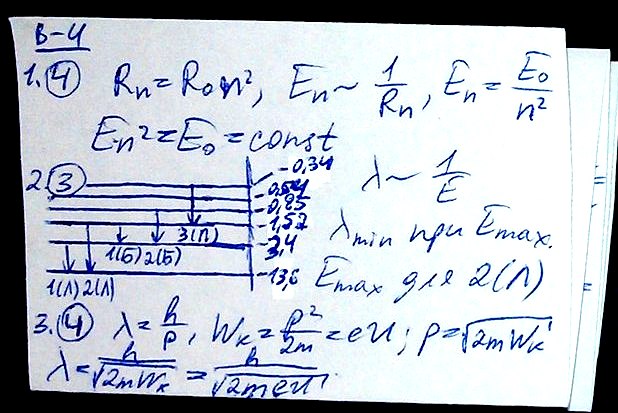 В-4
1. 4 Rn = R₀n², En ~ 1/Rn, En = E₀/n²
En² = E₀ = const
2. 3
-0,34
-0,54
-0,85
-1,52
-3,4
-13,6
3(П)
1(Б) 2(Б)
1(Л) 2(Л)
λ ~ 1/E
λmin при Emax.
Emax для 2(Л)
3. 4 λ = h/p, Wк = p²/2m = eU; p = √2mWк
λ = h/√2mWк = h/√2meU